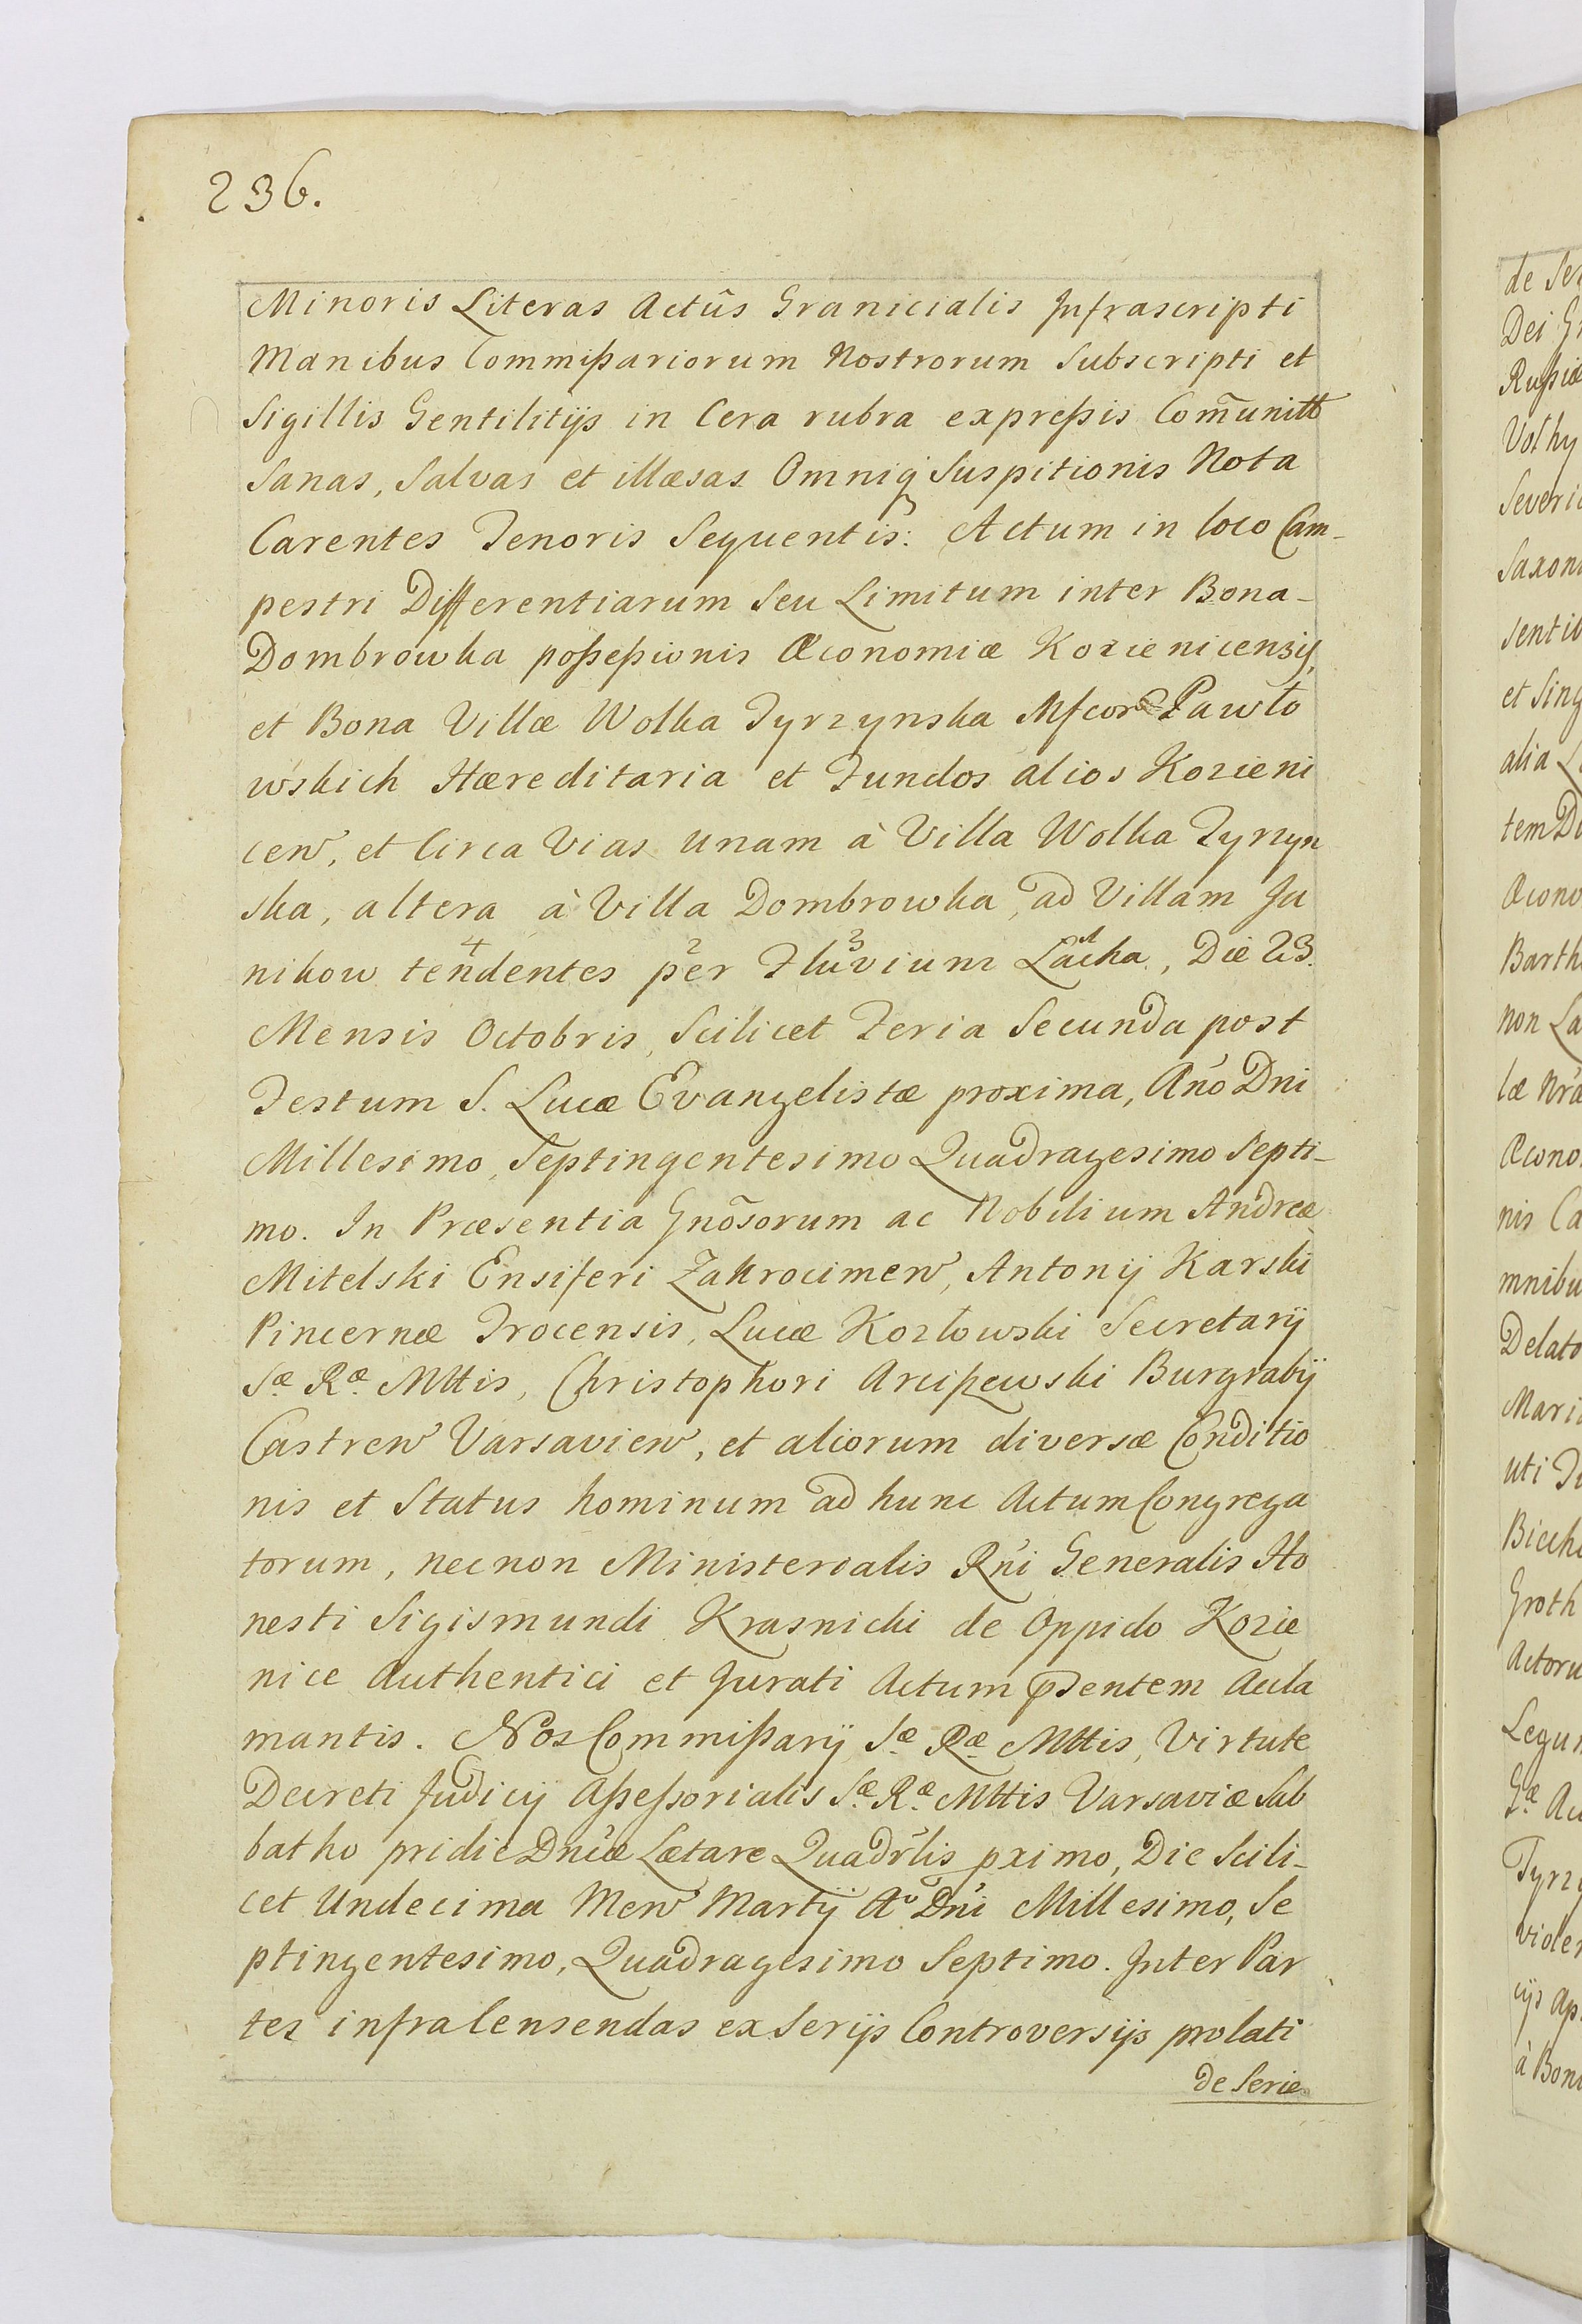 236.
Minoris Literas Actûs Granicialis Infrascripti
Manibus Commißariorum Nostrorum Subscripti et
Sigillis Gentilitijs in Cera rubra expreßis Com̃unitt
Sanas, Salvas et illæsas Omniq́ Suspitionis Nota
Carentes Tenoris Sequentis: Actum in loco Cam-
pestri Differentiarum Seu Limitum inter Bona-
Dombrowka poßeßionis Œconomiæ Kozienicensis,
et Bona Villæ Wolka Tyrzynska Mfcor Pawło
wskich Hæreditaria et Fundos alios Kozieni
cen, et Circa Vias unam à Villa Wolka Tyrzyn
ska, altera à Villa Dombrowka, ad Villam Ja
nikow tendentes per Fluvium Łacha, Die 23.
Mensis Octobris, Scilicet Feria Secunda post
Festum S. Lucæ Evangelistæ proxima, Año Dni
Millesimo, Septingentesimo Quadragesimo Septi-
mo. In Præsentia Gnõsorum ac Nobilium Andreæ
Mitelski Ensiferi Zakrocimen, Antonij Karski
Pincernæ Trocensis, Lucæ Kozłowski Secretarij
Sæ Ræ Mttis, Christophori Arcißewski Burgrabij
Castren Varsavien, et aliorum diversæ Conditio
nis et Status hominum ad hunc Actum Congrega
torum, necnon Ministerialis Rñi Generalis Ho
nesti Sigismundi Krasnicki de Oppido Kozie
nice Authentici et Jurati Actum pñtentem Accla
mantis. Nos Commißarij Sæ Ræ Mttis, Virtute
Decreti Judicij Aßeßorialis Sæ Ræ Mttis Varsaviæ Sab
batho pridie Dñicæ Lætare Quadrlis pximo, Die Scili-
cet Undecima Men Martij Aᵒ Dñi Millesimo, Se
ptingentesimo, Quadragesimo Septimo. Inter Par
tes infra Censendas ex Serijs Controversijs prolati
de Serie